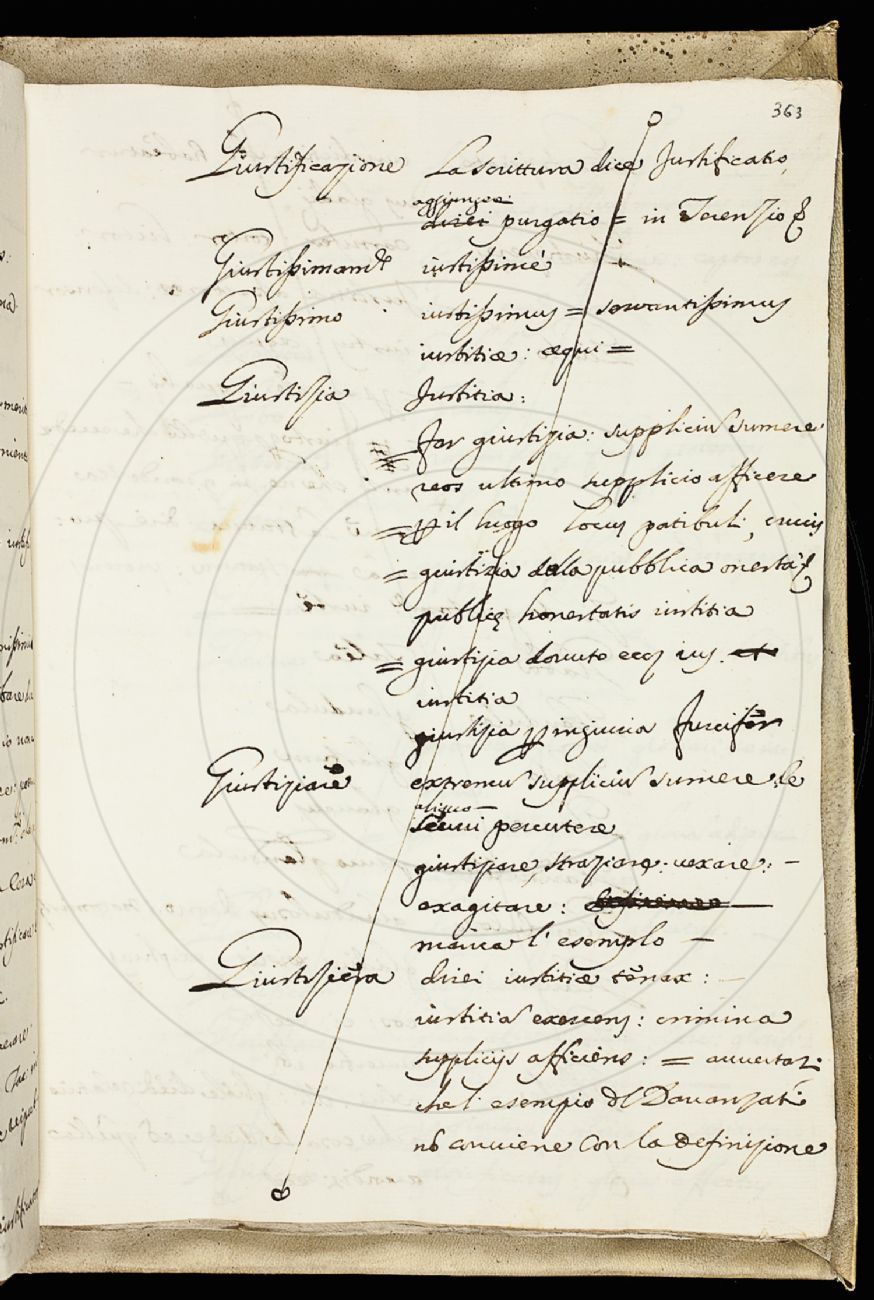 363
Giustificazione La scrittura dice Justificatio,
aggiungerei
direi purgatio = in Terenzio
Giustissimam.te iustissimè
Giustissimo iustissimus = servantissimus
iustitiæ: æqui =
Giustizia Justitia:
Far giustizia: suppliciũ sumere
reos ultimo supplicio afficere
= il luogo locus patibuli, crucis
= giustizia della pubblica onestà
publicę honestatis iustitia
= giustizia ius. et
iustitia
giustizia ingiuria Furcifer
Giustiziare extremũ suppliciũ sumere de
aliquo —
securi percutere
giustiziare, straziare: vexare: —
exagitare:
manca l'esempio —
Giustiziera direi iustitiæ tenax: —
iustitiã exercens: crimina
supplicijs afficiens: = avvertasi
che l'esempio dl Davanzati
nõ conviene con la definizione